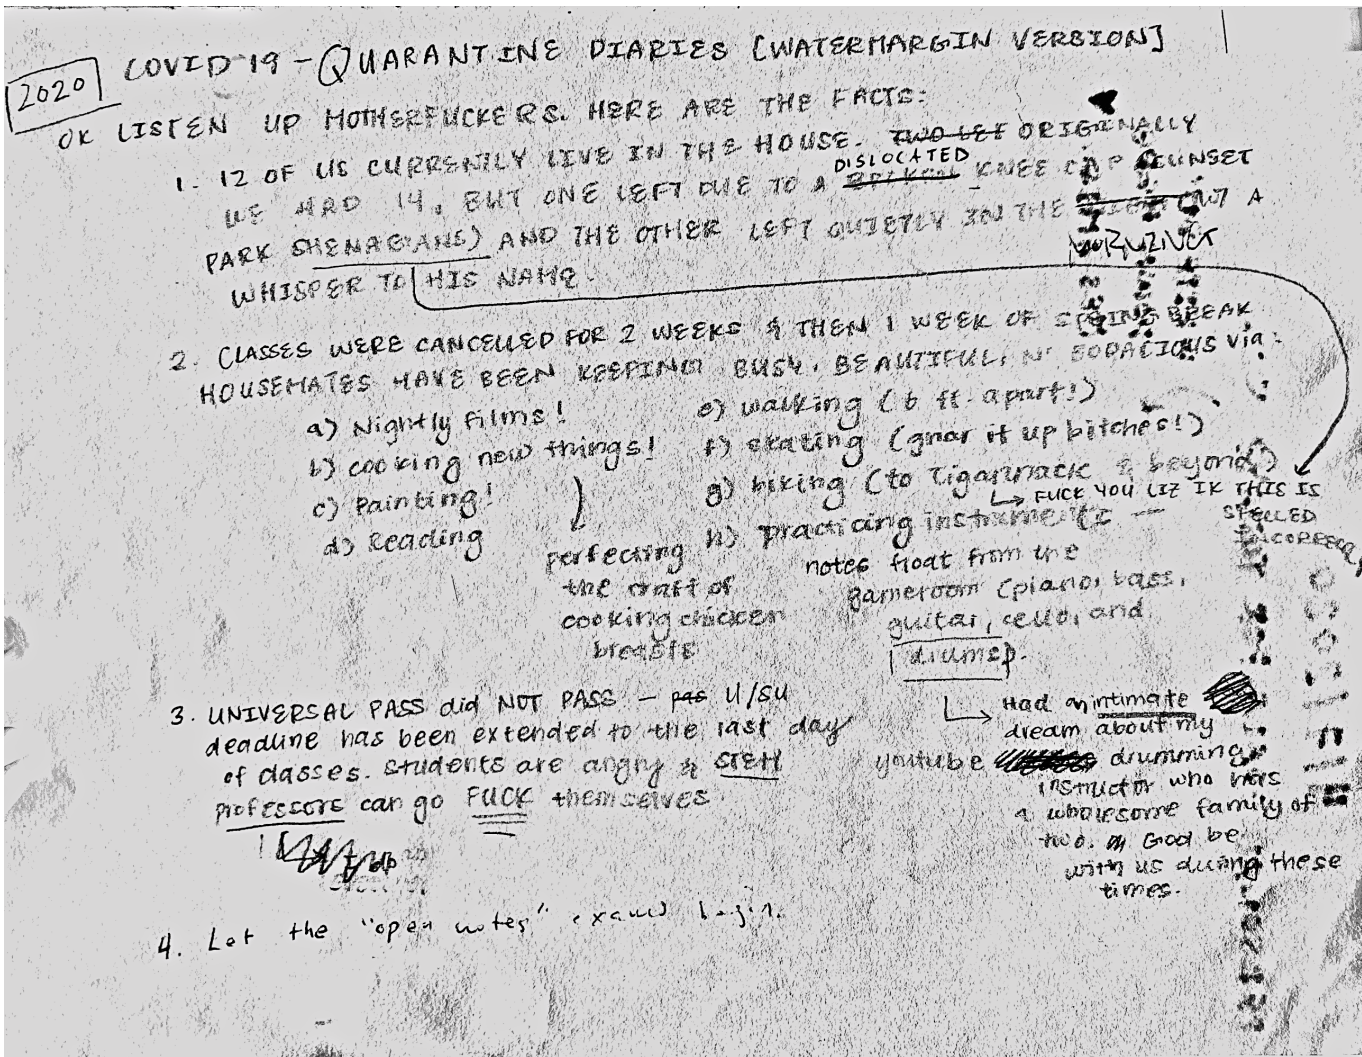 2020 COVID-19 - QUARANTINE DIARIES [WATERMARGIN VERSION]
OK LISTEN UP MOTHERFUCKERS. HERE ARE THE FACTS:
1. 12 OF US CURRENTLY LIVE IN THE HOUSE. TWO LEF ORIGINALLY
WE HAD 14, BUT ONE LEFT DUE TO A DISLOCATED BROKEN KNEE CAP (SUNSET
PARK SHENAGIANS) AND THE OTHER LEFT QUIETLY IN THE NIGHT (W/ A
WHISPER TO HIS NAME.
2. CLASSES WERE CANCELLED FOR 2 WEEKS & THEN 1 WEEK OF SPRING BREAK
HOUSEMATES HAVE BEEN KEEPING BUSY, BEAUTIFUL, N' BODACIOUS via:
a) Nightly films!
b) cooking new things!
c) Painting!
d) Reading
perfecting
the craft of
cooking chicken
breasts
e) walking (6 ft. apart!)
f) skating (gnar it up bitches!)
g) biking (to Tigannack & beyond)
FUCK YOU LIZ IK THIS IS
SPELLED
INCORRECTLY
h) practicing instruments —
notes float from the
gameroom (piano, bass,
guitar, cello, and
drums).
Had an intimate
dream about my
youtube drumming
instructor who has
a wholesome family of
two. God be
with us during these
times.
3. UNIVERSAL PASS did NOT PASS — pas U/SU
deadline has been extended to the last day
of classes. Students are angry & STEM
professors can go FUCK themselves
4. Let the "open notes" exams begin.